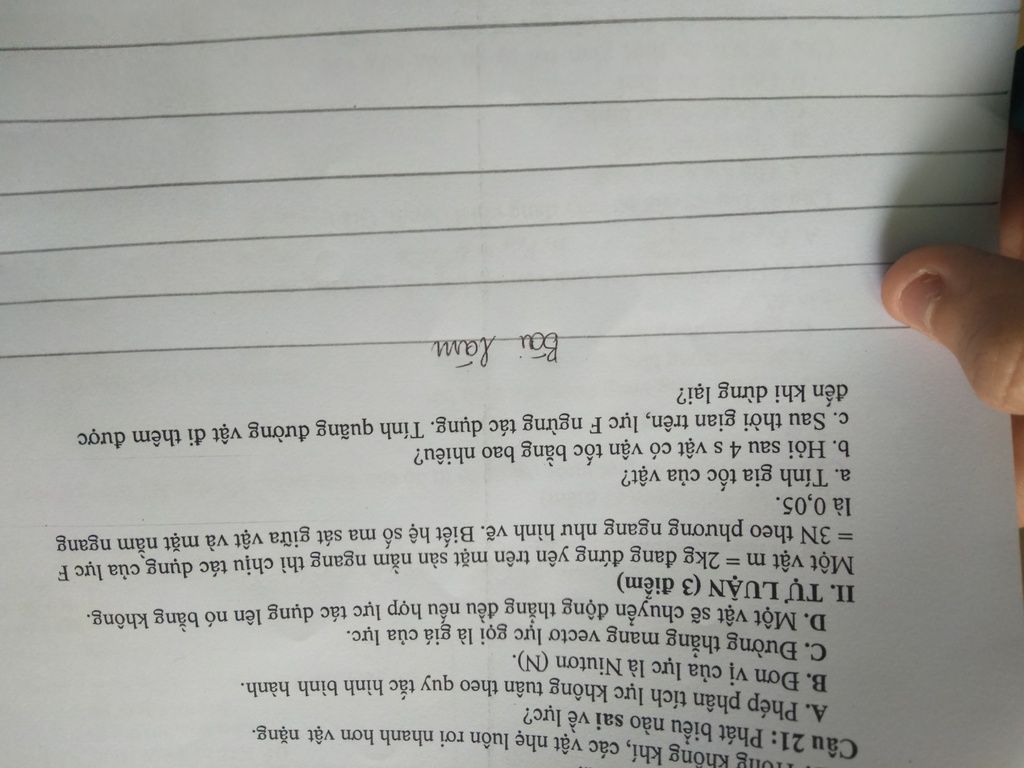 Trong không khí, các vật nhẹ luôn rơi nhanh hơn vật nặng.
Câu 21: Phát biểu nào sai về lực?
A. Phép phân tích lực không tuân theo quy tắc hình bình hành.
B. Đơn vị của lực là Niuton (N).
C. Đường thẳng mang vectơ lực gọi là giá của lực.
D. Một vật sẽ chuyển động thẳng đều nếu hợp lực tác dụng lên nó bằng không.
II. TỰ LUẬN (3 điểm)
Một vật m = 2kg đang đứng yên trên mặt sàn nằm ngang thì chịu tác dụng của lực F
= 3N theo phương ngang như hình vẽ. Biết hệ số ma sát giữa vật và mặt nằm ngang
là 0,05.
a. Tính gia tốc của vật?
b. Hỏi sau 4 s vật có vận tốc bằng bao nhiêu?
c. Sau thời gian trên, lực F ngừng tác dụng. Tính quãng đường vật đi thêm được
đến khi dừng lại?
Bài làm